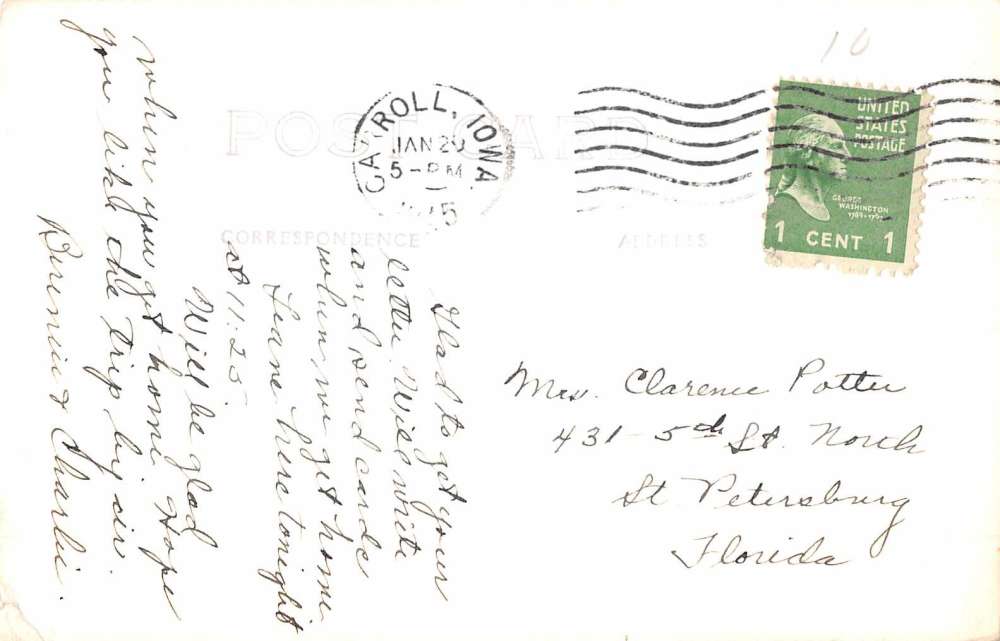 10
POST CARD
CARROLL, IOWA
JAN 20
5-PM
UNITED
STATES
POSTAGE
GEORGE
WASHINGTON
1 CENT 1
CORRESPONDENCE
ADDRESS
Glad to get your
letter. Will write
and send cards
when we get home
Leave here tonight
at 11:25.
Will be glad
when you get home Hope
you like the trip by air.
Bernice & Charlie.
Mrs. Clarence Potter
431 - 5th St. North
St Petersburg
Florida